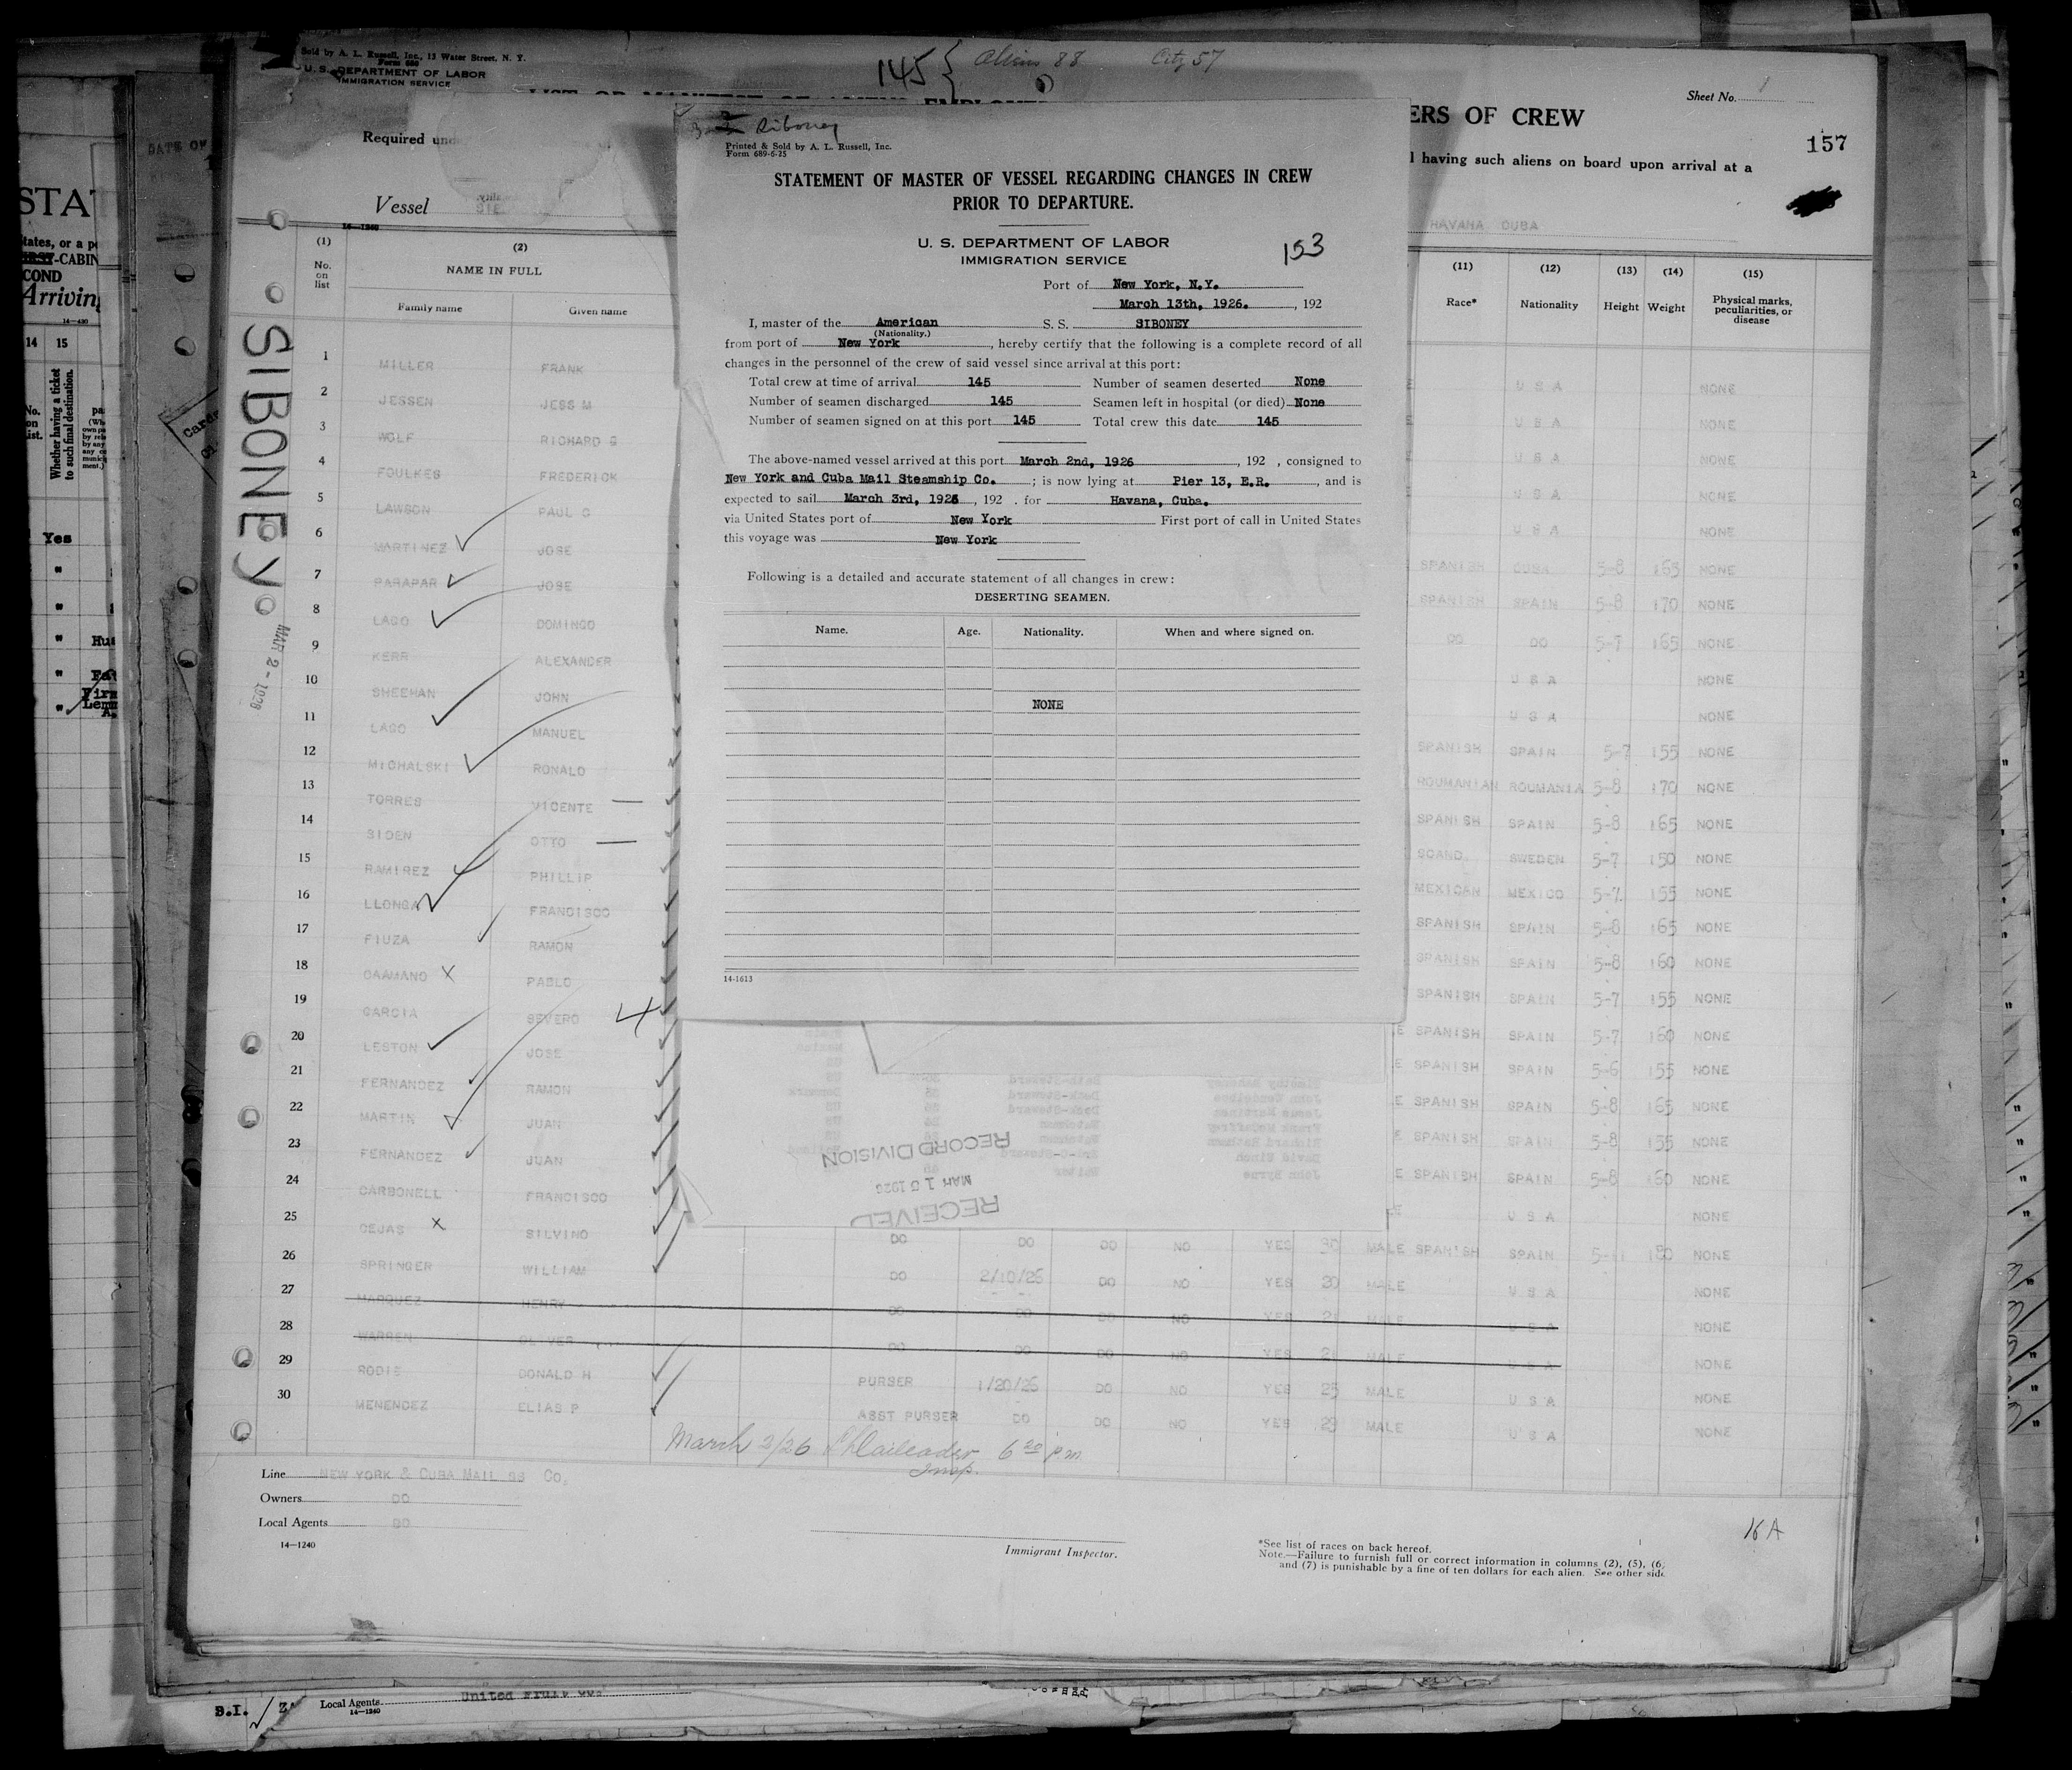 Sold by A. L. Russell, Inc., 15 Water Street, N. Y.
Form 680
U. S. DEPARTMENT OF LABOR
IMMIGRATION SERVICE
145 { Aliens 88 City 57
Sheet No. 1
ERS OF CREW
157
Required und
l having such aliens on board upon arrival at a
Vessel
HAVANA CUBA
14—1240
(1) (2) (11) (12) (13) (14) (15)
No. on list NAME IN FULL Race* Nationality Height Weight Physical marks, peculiarities, or disease
Family name Given name
SIBONEY
MAR 2 - 1926
1 MILLER FRANK U S A NONE
2 JESSEN JESS M U S A NONE
3 WOLF RICHARD G U S A NONE
4 FOULKES FREDERICK U S A NONE
5 LAWSON PAUL G U S A NONE
6 MARTINEZ JOSE SPANISH CUBA 5-8 165 NONE
7 PARAPAR JOSE SPANISH SPAIN 5-8 170 NONE
8 LAGO DOMINGO DO DO 5-7 165 NONE
9 KERR ALEXANDER U S A NONE
10 SHEEHAN JOHN U S A NONE
11 LAGO MANUEL SPANISH SPAIN 5-7 155 NONE
12 MICHALSKI RONALD ROUMANIAN ROUMANIA 5-8 170 NONE
13 TORRES VICENTE SPANISH SPAIN 5-8 165 NONE
14 SIDEN OTTO SCAND. SWEDEN 5-7 150 NONE
15 RAMIREZ PHILLIP MEXICAN MEXICO 5-7 155 NONE
16 LLONGA FRANCISCO SPANISH SPAIN 5-8 165 NONE
17 FIUZA RAMON SPANISH SPAIN 5-8 160 NONE
18 CAAMANO X PABLO SPANISH SPAIN 5-7 155 NONE
19 GARCIA SEVERO SPANISH SPAIN 5-7 160 NONE
20 LESTON JOSE E SPANISH SPAIN 5-6 155 NONE
21 FERNANDEZ RAMON E SPANISH SPAIN 5-8 165 NONE
22 MARTIN JUAN E SPANISH SPAIN 5-8 155 NONE
23 FERNANDEZ JUAN E SPANISH SPAIN 5-8 160 NONE
24 CARBONELL FRANCISCO U S A NONE
25 CEJAS X SILVINO DO DO DO NO YES 30 MALE SPANISH SPAIN 180 NONE
26 SPRINGER WILLIAM DO 2/10/26 DO NO YES 20 MALE U S A NONE
27 MARQUEZ HENRY DO DO DO NO YES 21 MALE U S A NONE
28 WARREN OLIVER DO DO DO NO YES 21 MALE U S A NONE
29 RODIE DONALD H PURSER 1/20/26 DO NO YES 25 MALE U S A NONE
30 MENENDEZ ELIAS P ASST PURSER DO DO NO YES 29 MALE U S A NONE
March 2/26 6 20 pm
Insp.
Line NEW YORK & CUBA MAIL SS Co.
Owners DO
Local Agents DO
14—1240
Immigrant Inspector.
*See list of races on back hereof.
Note.—Failure to furnish full or correct information in columns (2), (5), (6,
and (7) is punishable by a fine of ten dollars for each alien. See other side
16 A
Siboney
Printed & Sold by A. L. Russell, Inc.
Form 689-6-25
STATEMENT OF MASTER OF VESSEL REGARDING CHANGES IN CREW
PRIOR TO DEPARTURE.
U. S. DEPARTMENT OF LABOR
IMMIGRATION SERVICE
153
Port of New York, N.Y.
March 13th, 1926. , 192
I, master of the American S. S. SIBONEY
(Nationality.)
from port of New York , hereby certify that the following is a complete record of all
changes in the personnel of the crew of said vessel since arrival at this port:
Total crew at time of arrival 145 Number of seamen deserted None
Number of seamen discharged 145 Seamen left in hospital (or died) None
Number of seamen signed on at this port 145 Total crew this date 145
The above-named vessel arrived at this port March 2nd, 1926 , 192 , consigned to
New York and Cuba Mail Steamship Co. ; is now lying at Pier 13, E.R. , and is
expected to sail March 3rd, 1926 , 192 . for Havana, Cuba.
via United States port of New York First port of call in United States
this voyage was New York
Following is a detailed and accurate statement of all changes in crew:
DESERTING SEAMEN.
Name. Age. Nationality. When and where signed on.
NONE
14-1613
RECORD DIVISION
MAR 15 1926
RECEIVED
STAT
tates, or a p
-CABIN
COND
Arriving
14—430
14 15
No. on list.
Whether having a ticket to such final destination.
Yes
"
"
" Hus
" Fat
"
DATE OF
B.I.
Local Agents United Fruit Co.
14—1240